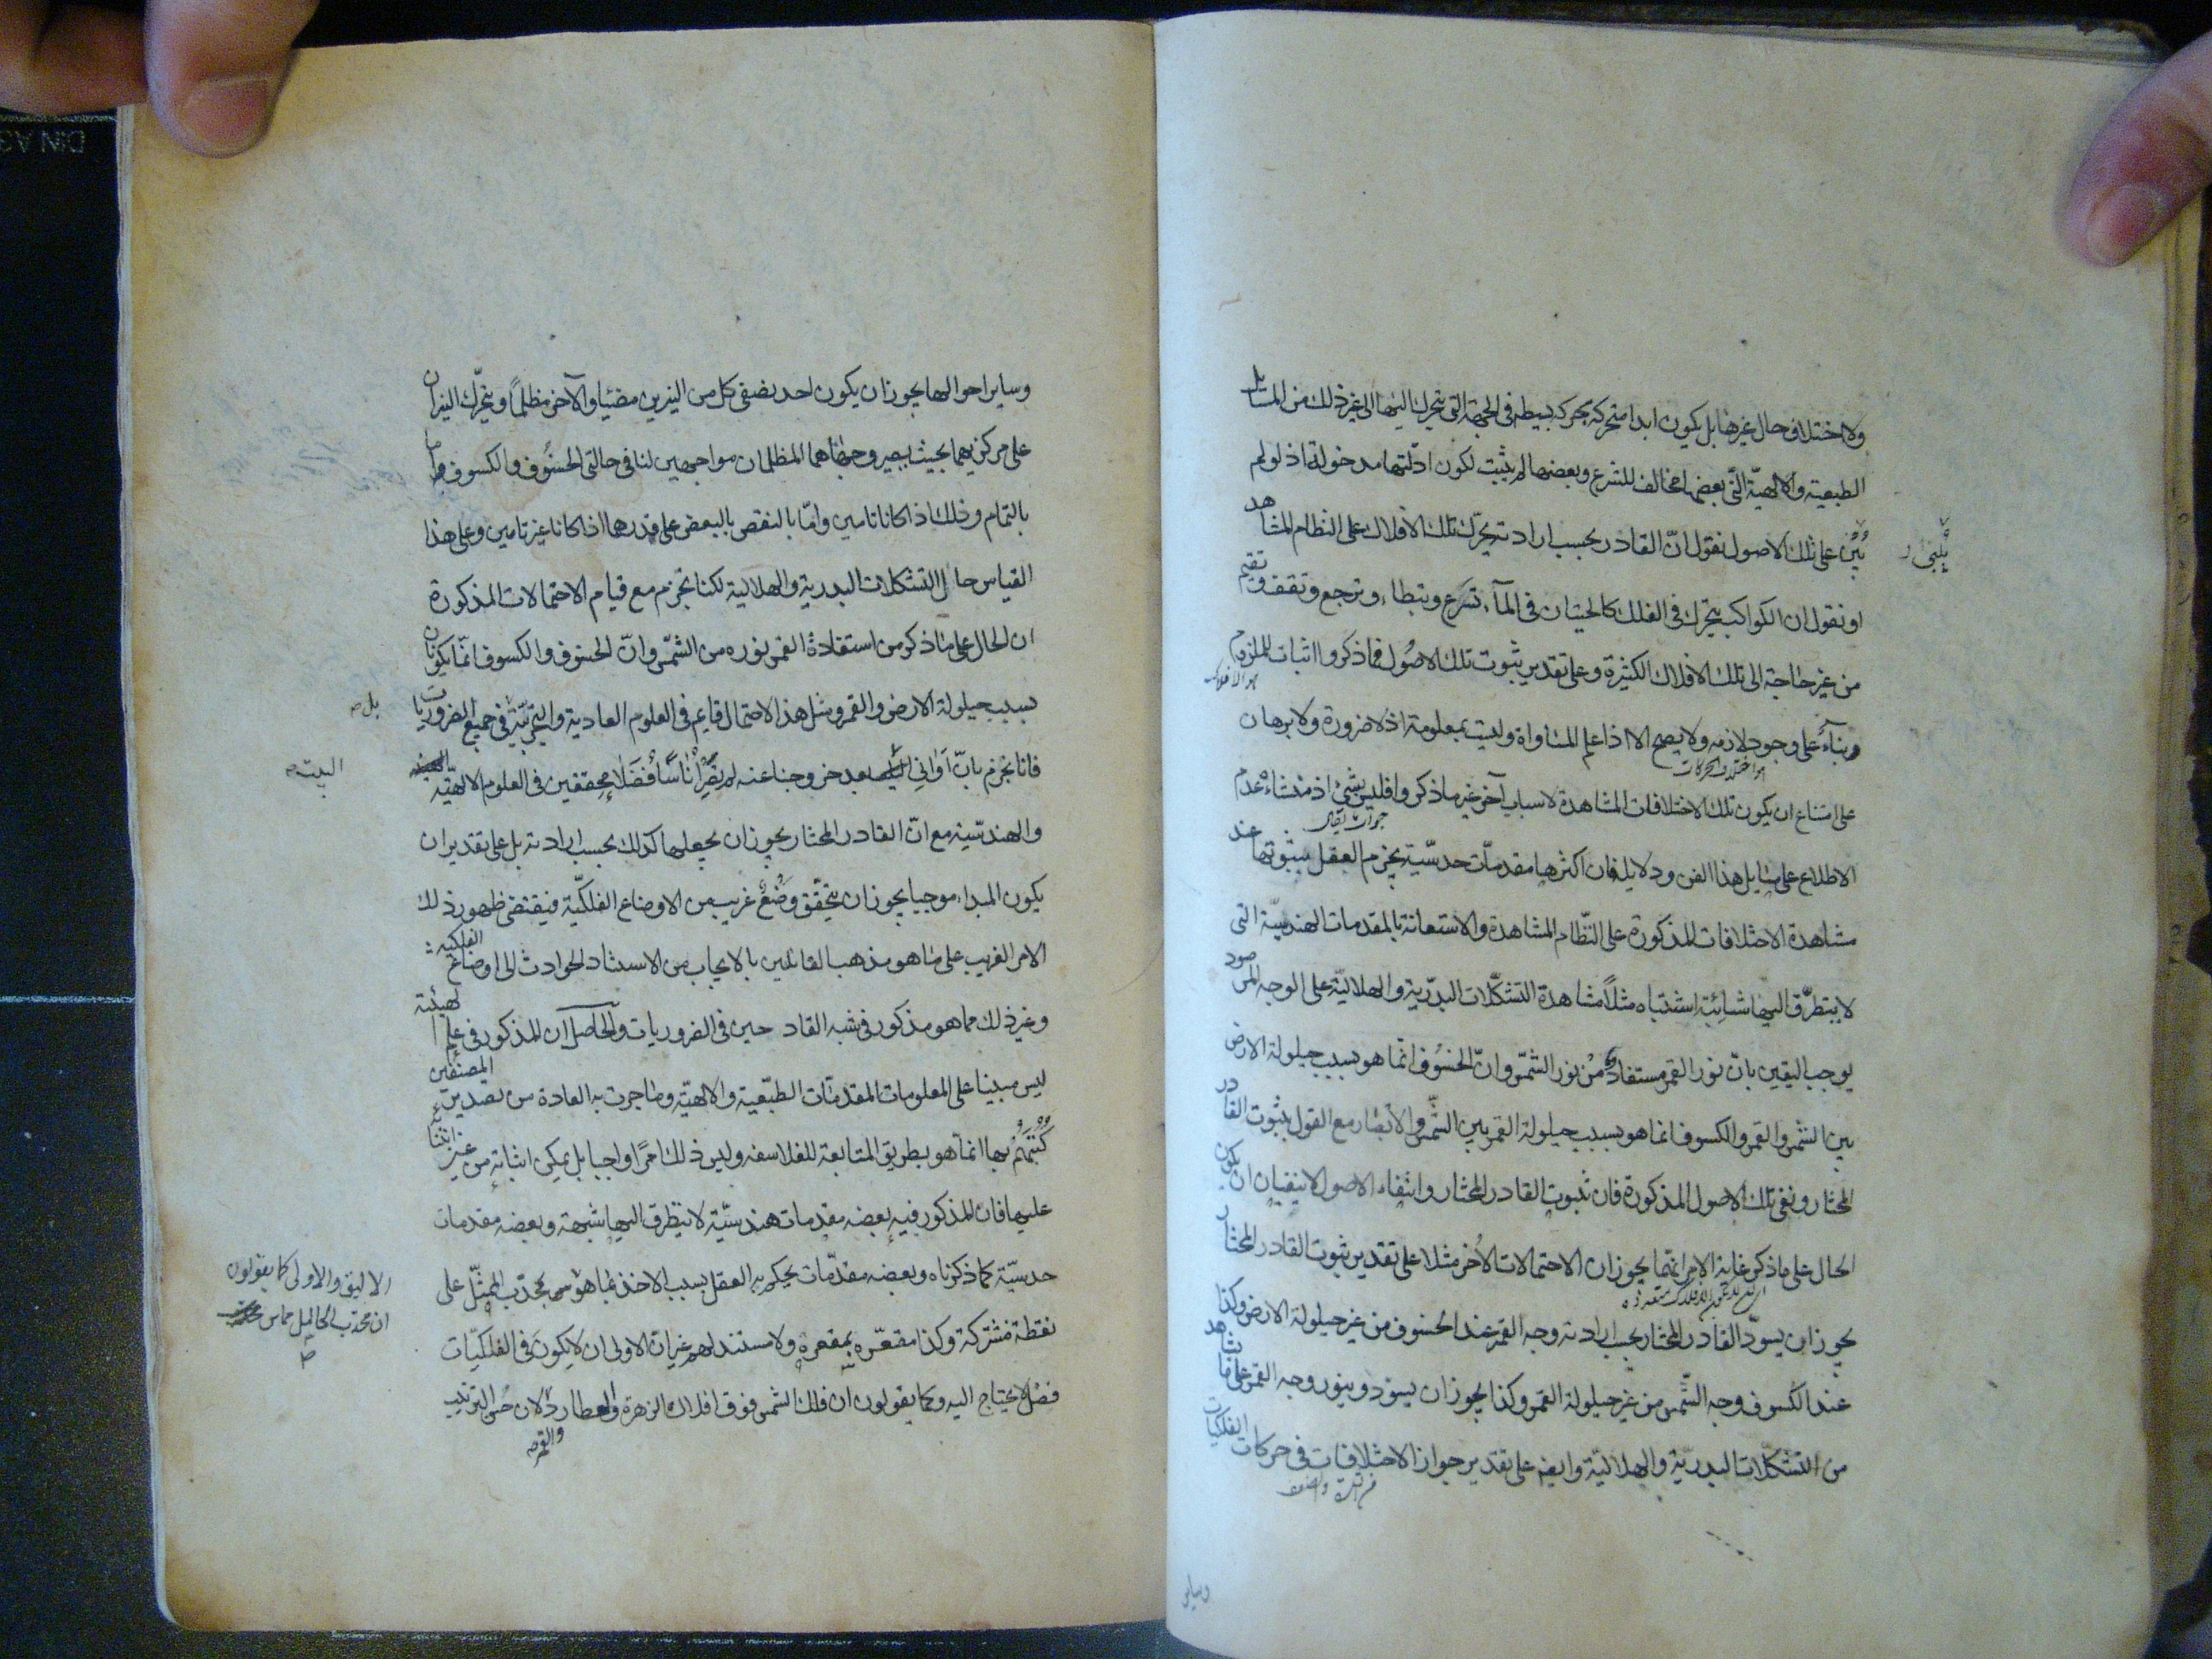 ولا اختلاف حال غيرها بل يكون ابدا متحركة بحركة بسيطة في الجهة التي يتحرك اليها الى غير ذلك من المسائل
الطبيعية والالهية التي بعضها مخالف للشرع وبعضها لم يثبت لكون ادلتها مدخولة اذ لو لم
يبن على تلك الاصول نقول انّ القادر بحسب ارادته يحرّك تلك الافلاك على النظام المشاهد
او نقول ان الكواكب يتحرك في الفلك كالحيتان في المآء تسرع وتبطاء وترجع وتقف وتقيم
من غير حاجة الى تلك الافلاك الكثيرة وعلى تقدير ثبوت تلك الاصول فما ذكروا اثبات للملزوم
هو الافلاك
بناءً على وجود لازمه ولا يصح الا اذا علم المساواة وليست بمعلومة اذ لا ضرورة ولا برهان
هو اختلاف الحركات
على امتناع ان يكون تلك الاختلافات المشاهدة لاسباب آخر غير ما ذكروا فليس بشئ اذ منشاءه عدم
الاطلاع على مسايل هذا الفن ودلايله فان اكثرها مقدمات حدسية يجزم العقل بثبوتها عند
مشاهدة الاختلافات المذكورة على النظام المشاهدة والاستعانة بالمقدمات الهندسيّة التي
لا يتطرّق اليها شائبة اشتباه مثلاً مشاهدة التشكّلات البدرية والهلاليّة على الوجه المرصود
يوجب اليقين بانّ نور القمر مستفاد من نور الشمس وانّ الخسوف انما هو بسبب حيلولة الارض
بين الشمس والقمر والكسوف انما هو بسبب حيلولة القمر بين الشمس والابصار مع القول بثبوت القادر
المختار ونفى تلك الاصول المذكورة فان ثبوت القادر المختار وانتفاء الاصول لا ينفيان ان يكون
الحال على ما ذكر غاية الامر انهما يجوزان الاحتمالات الأخر مثلا على تقدير ثبوت القادر المختار
يجوز ان يسوّد القادر المختار بحسب ارادته وجه القمر عند الخسوف من غير حيلولة الارض وكذا
عند الكسوف وجه الشمس من غير حيلولة القمر وكذا يجوز ان يسود وينور وجه القمر على ما يشاهد
من التشكّلات البدرية والهلالية وايضا على تقدير جواز الاختلافات في حركات الفلكيات
وساير
وساير احوالها يجوز ان يكون احد نصفى كل من النيرين مضيئا والآخر مظلماً ويتحرّك النيران
على مركزيهما بحيث يصير وجهاهما المظلمان مواجهين لنا في حالتى الخسوف والكسوف اما
بالتمام وذلك اذا كانا تامين وامّا بالنقص بالبعض على قدرهما اذا كانا غير تامين وعلى هذا
القياس حال التشكلات البدرية والهلالية لكنا نجزم مع قيام الاحتمالات المذكورة
ان الحال على ما ذكر من استفادة القمر نوره من الشمس وانّ الخسوف والكسوف انّما يكونان
بسبب حيلولة الارض والقمر ومثل هذا الاحتمال قايم في العلوم العادية والتجربيّة بل في جميع الضروريات
فانا نجزم بانّ اوانى البيت بعد خروجنا عنه لم يصر اناساً فضلاء محققين في العلوم الالهيّة
والهندسية مع انّ القادر المختار يجوز ان يجعلها كذلك بحسب ارادته بل على تقدير ان
يكون المبداء موجبا يجوز ان يتحقّق وضع غريب من الاوضاع الفلكيّة فيقتضى ظهور ذلك
الامر الغريب على ما هو مذهب القائلين بالايجاب من الاستناد الحوادث الى اوضاع الفلكية
وغير ذلك مما هو مذكور في شبه القادحين في الضروريات والحاصل ان المذكور في علم الهيئة
ليس مبنيا على المعلومات المقدمات الطبيعية والالهية وما جرت به العادة من تصدير المصنفين
كتبهم بها انما هو بطريق المتابعة للفلاسفه وليس ذلك امرًا واجبا بل يمكن اثباته من غير ابتناء
عليها فان المذكور فيه بعضه مقدمات هندسيّة لا يتطرق اليها شبهة وبعضه مقدمات
حدسيّة كما ذكرناه وبعضه مقدّمات يحكم به العقل بسبب الاخذ بما هو
الاليق والاولى كما يقولون
ان محدّب الحامل مماس
بمحدّب الممثّل على
نقطة مشتركة وكذا مقعّره بمقعره ولا مستند لهم غير ان الاولى ان لا يكون في الفلكيّات
فصل لا يحتاج اليه وكما يقولون ان فلك الشمس فوق افلاك الزهرة والعطارد لان حسن الترتيب
والقمر